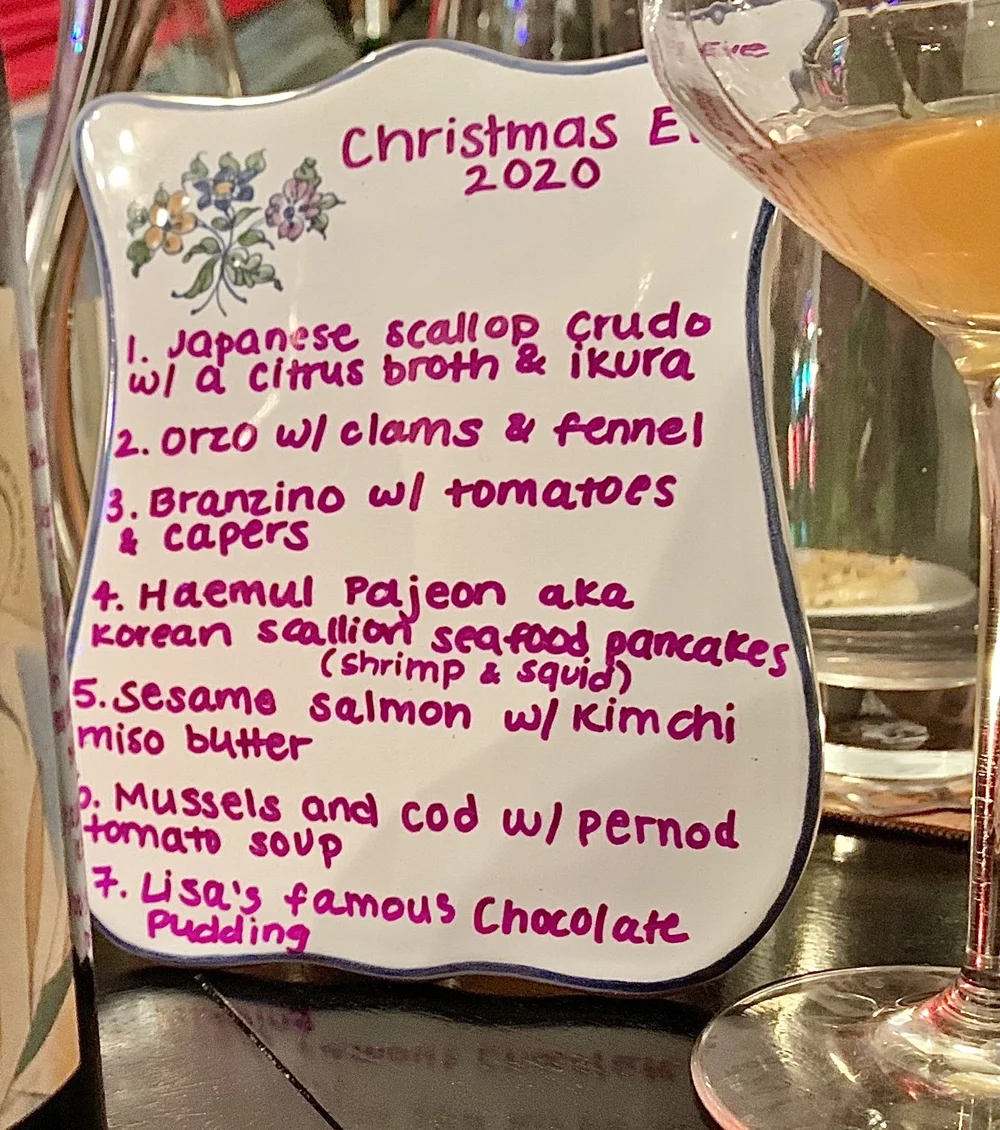 Christmas E
2020
1. Japanese scallop crudo
w/ a citrus broth & ikura
2. orzo w/ clams & fennel
3. Branzino w/ tomatoes
& capers
4. Haemul Pajeon aka
Korean scallion seafood pancakes
(shrimp & squid)
5. Sesame salmon w/ Kimchi
miso butter
6. Mussels and cod w/ pernod
tomato soup
7. Lisa's famous Chocolate
Pudding